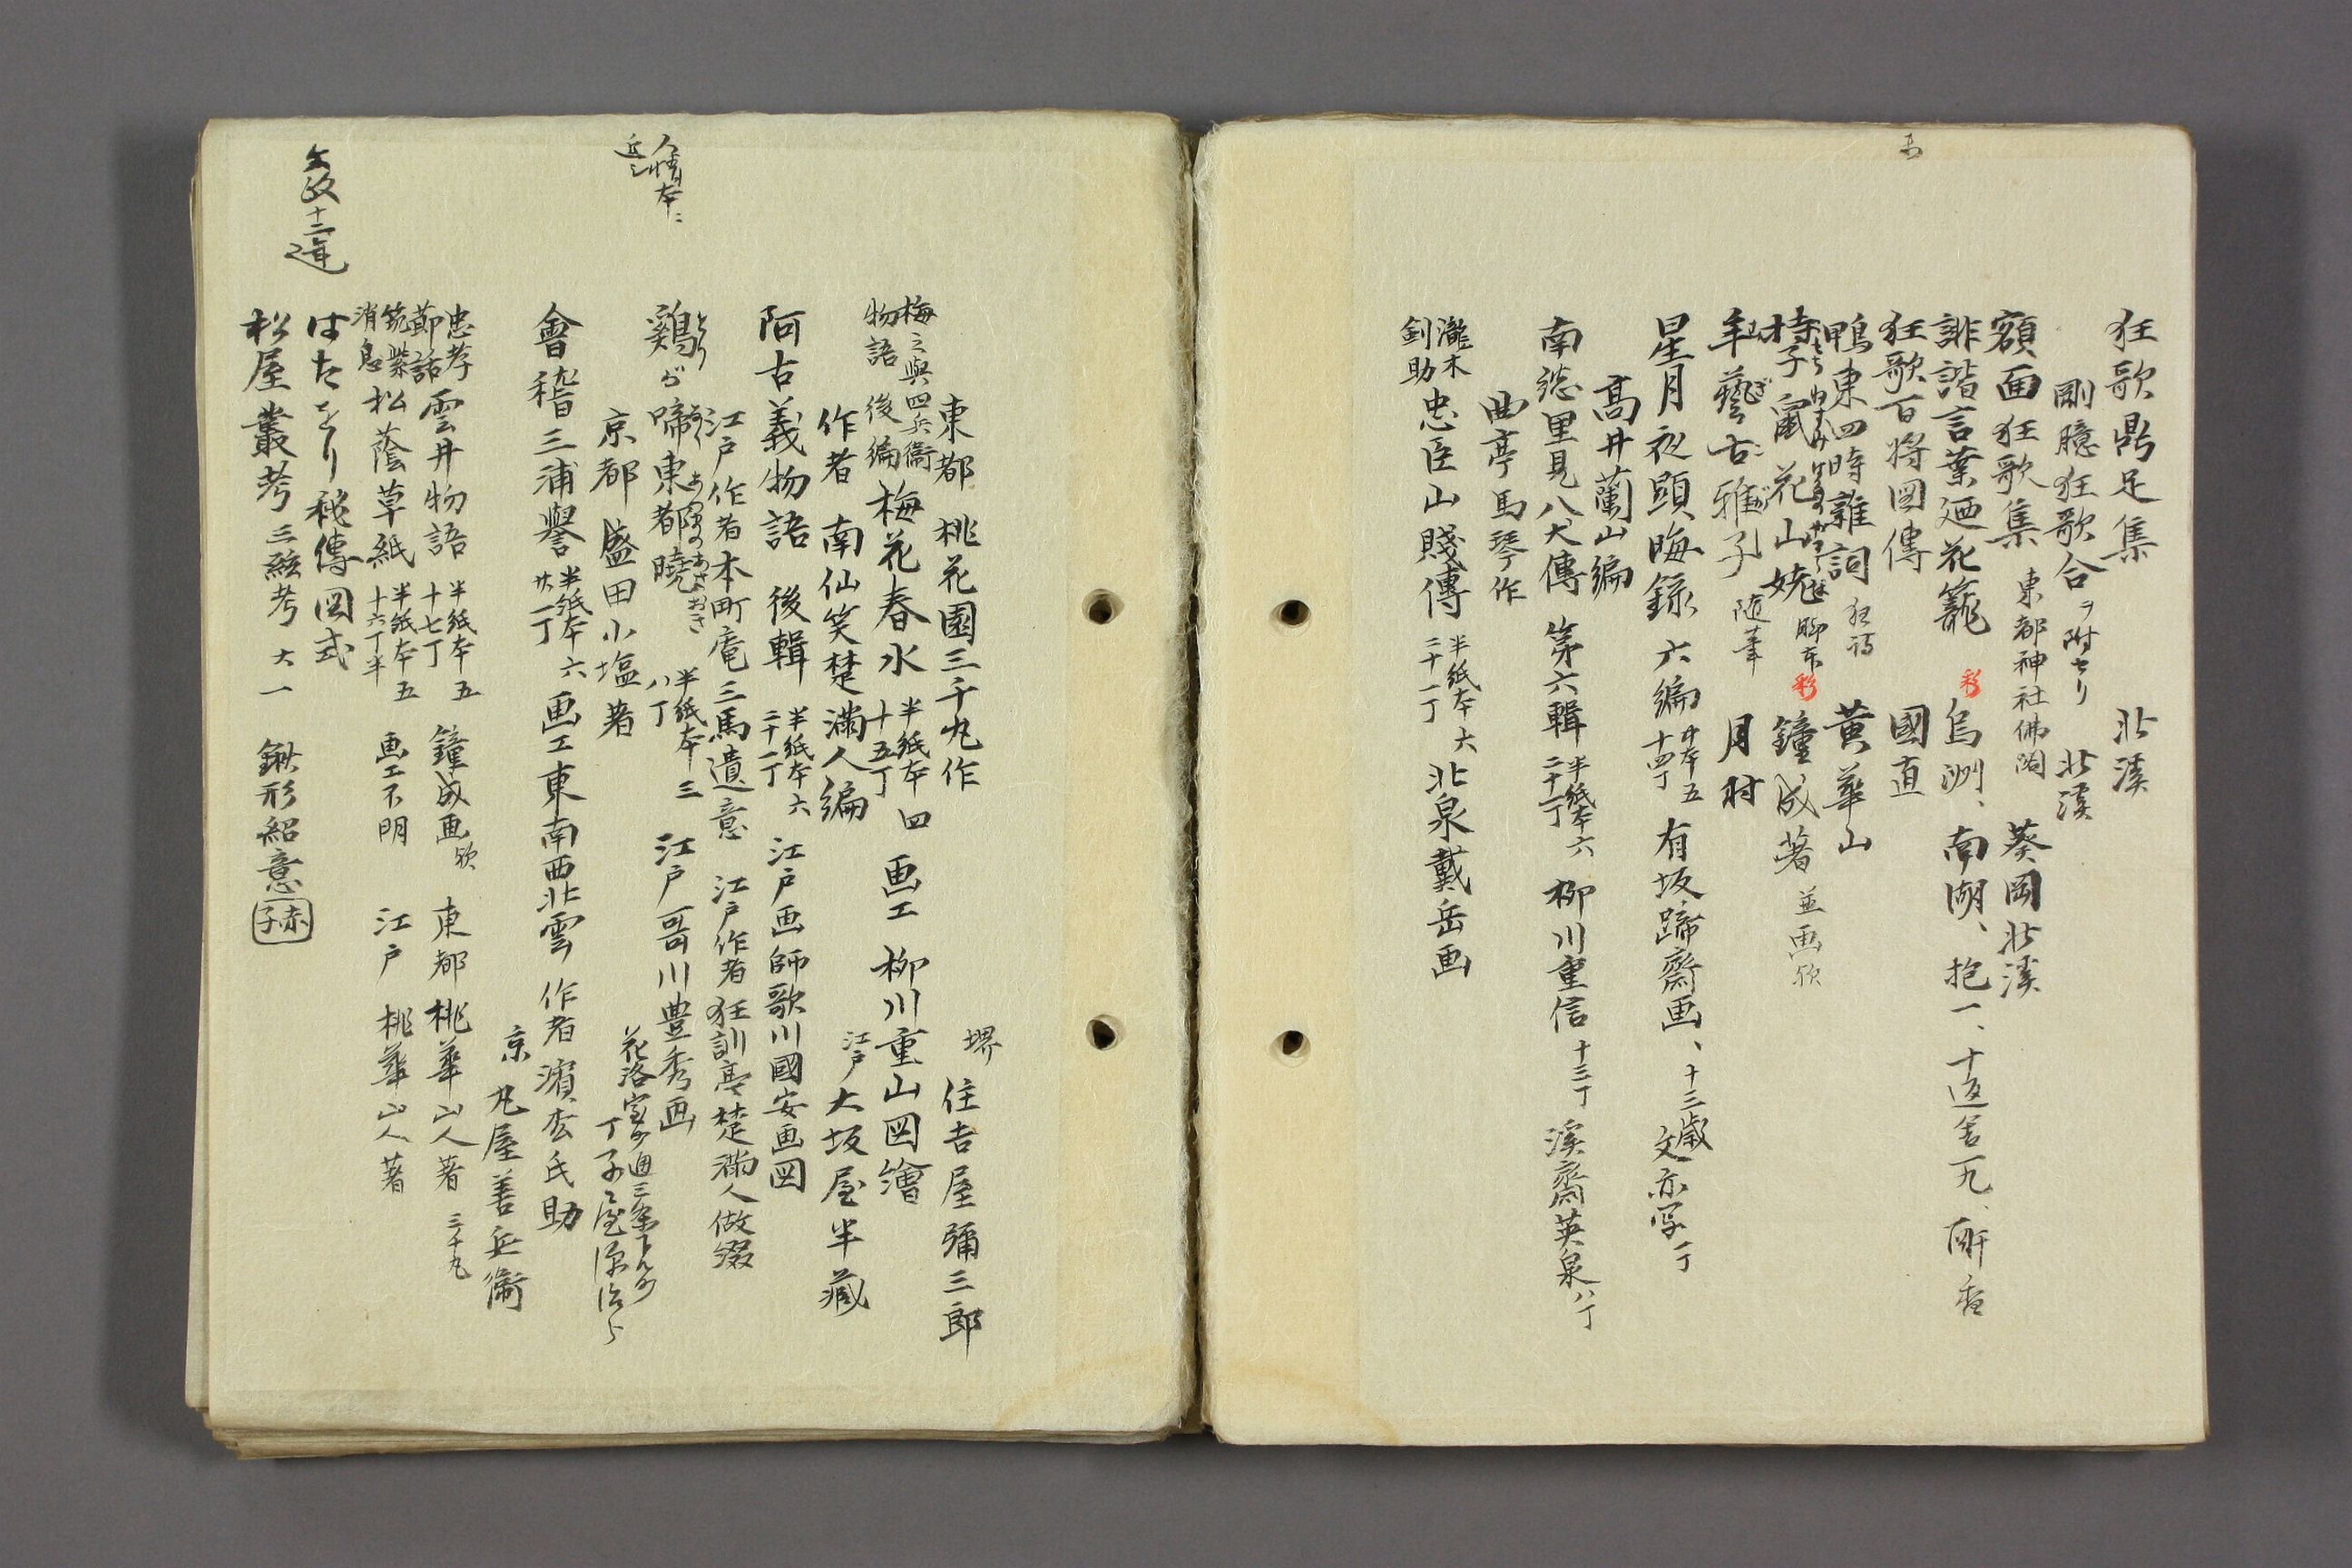 狂歌鼎足集 北溪
剛臆狂歌合ヲ附セリ 北溪
額面狂歌集 東都神社佛閣 葵岡北溪
誹諧言葉廼花籠 彩 烏洲、南湖、抱一、十返舎一九、
狂歌百将図傳 國直
鴨東四時雜詞 狂詩 黄華山
持子鼠花山姥 脚本 彩 鐘成著 並画欤
羊藝古雅子 随筆 月村
星月夜顕晦録 六編 中本五 十四丁 有坂蹄齋画、十三歳文亦写一丁
高井蘭山編
南総里見八犬傳 第六輯 半紙本六 二十一丁 柳川重信 十三丁 溪齋英泉 八丁
曲亭馬琴作
瀧木釗助 忠臣山賤傳 半紙本六 二十一丁 北泉戴岳画
東都 桃花園三千丸作 堺 住吉屋彌三郎
梅之與四兵衛物語 後編 梅花春水 半紙本四 十五丁 画工 柳川重山図繪
作者 南仙笑楚滿人編 江戸 大坂屋半藏
阿古義物語 後輯 半紙本六 二十一丁 江戸画師歌川國安画図
江戸作者本町庵三馬遺意 江戸作者狂訓亭楚滿人做綴
人情本ニ近シ
鶏が啼東都曉 半紙本三 八丁 江戸哥川豊秀画
京都 盛田小塩著
會稽三浦譽 半紙本六 廿丁 画工東南西北雲 作者 濱枩氏助
京 丸屋善兵衛
忠孝節話 雲井物語 半紙本五 十七丁 鐘成画欤 東都 桃華山人著
筑紫消息 松蔭草紙 半紙本五 十六丁半 画工不明 江戸 桃華山人著
文政十二年
はたをり秘傳図式
松屋叢考 三絃考 大一 鍬形紹意 赤子